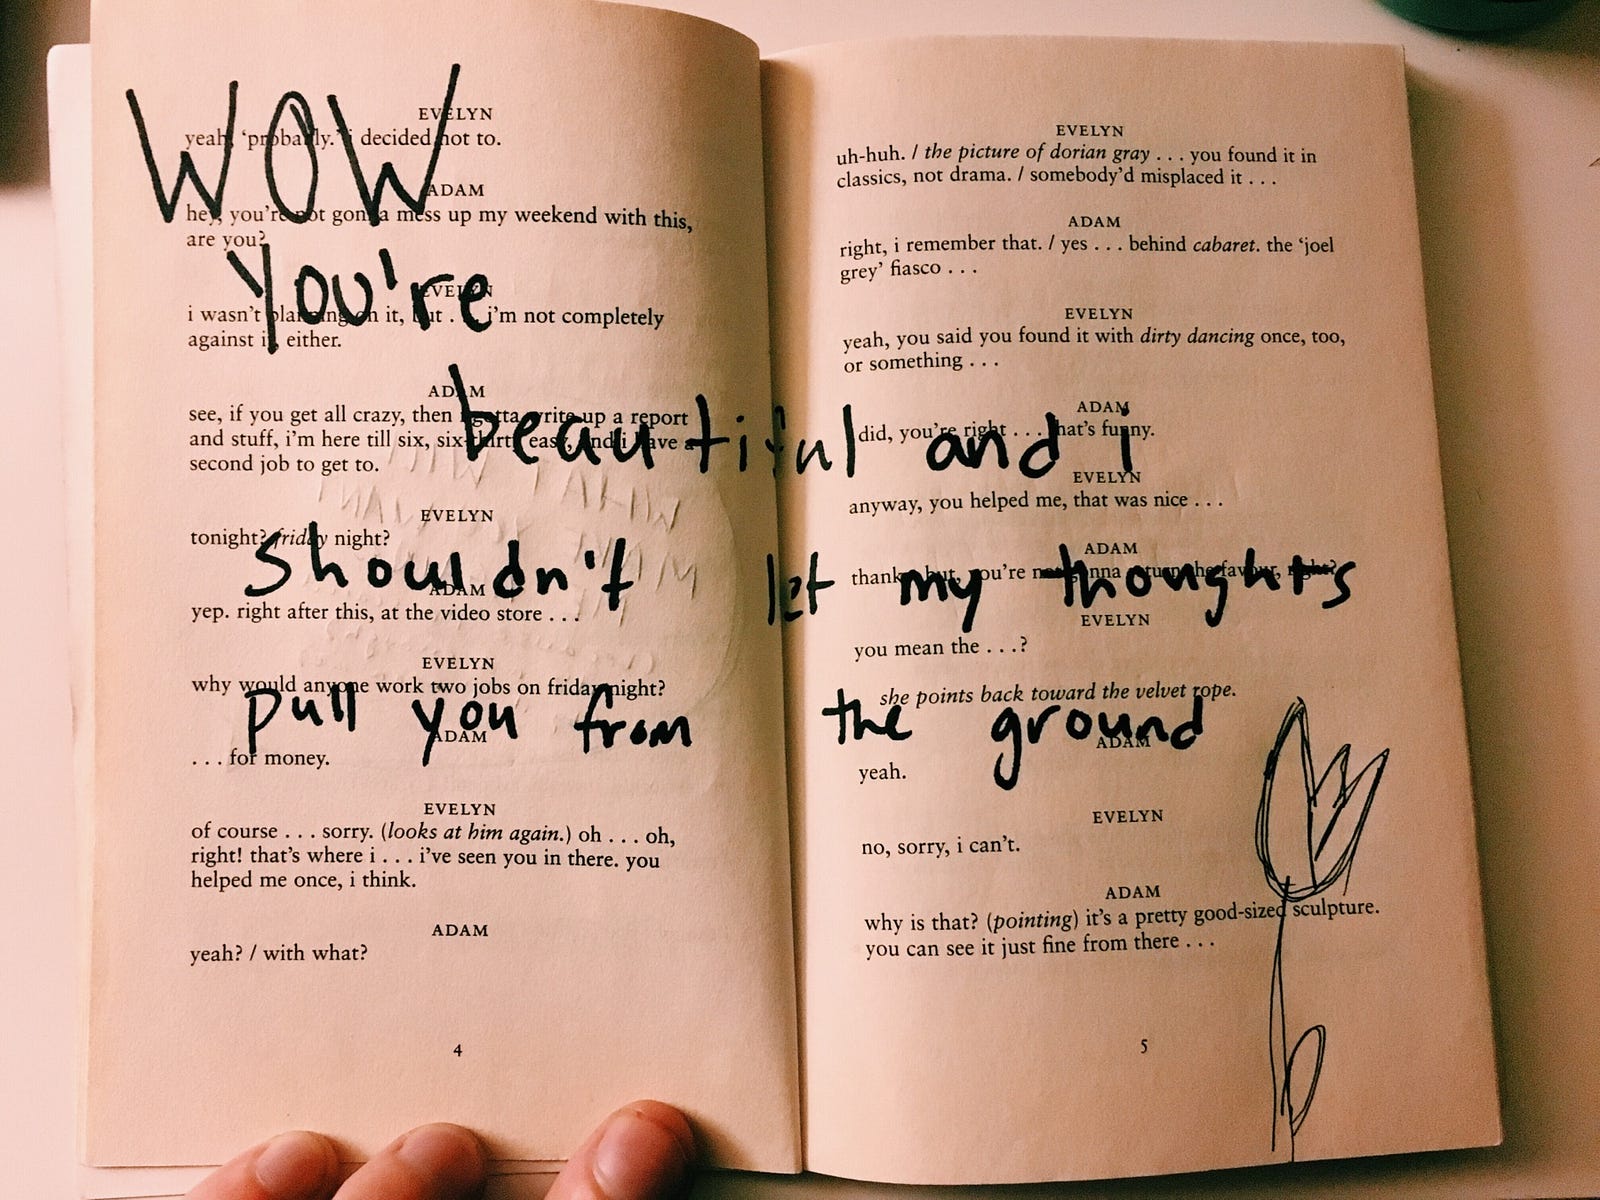 WOW
you're
beautiful and i
shouldn't let my thoughts
pull you from the ground
EVELYN
yeah, 'probably.' i decided not to.
ADAM
hey, you're not gonna mess up my weekend with this,
are you?
EVELYN
i wasn't planning on it, but . . . i'm not completely
against it, either.
ADAM
see, if you get all crazy, then i gotta write up a report
and stuff, i'm here till six, six-thirty easy, and i have a
second job to get to.
EVELYN
tonight? friday night?
ADAM
yep. right after this, at the video store . . .
EVELYN
why would anyone work two jobs on friday night?
ADAM
. . . for money.
EVELYN
of course . . . sorry. (looks at him again.) oh . . . oh,
right! that's where i . . . i've seen you in there. you
helped me once, i think.
ADAM
yeah? / with what?
4
EVELYN
uh-huh. / the picture of dorian gray . . . you found it in
classics, not drama. / somebody'd misplaced it . . .
ADAM
right, i remember that. / yes . . . behind cabaret. the 'joel
grey' fiasco . . .
EVELYN
yeah, you said you found it with dirty dancing once, too,
or something . . .
ADAM
did, you're right . . . that's funny.
EVELYN
anyway, you helped me, that was nice . . .
ADAM
thanks, but, you're not gonna return the favour, right?
EVELYN
you mean the . . .?
she points back toward the velvet rope.
ADAM
yeah.
EVELYN
no, sorry, i can't.
ADAM
why is that? (pointing) it's a pretty good-sized sculpture.
you can see it just fine from there . . .
5